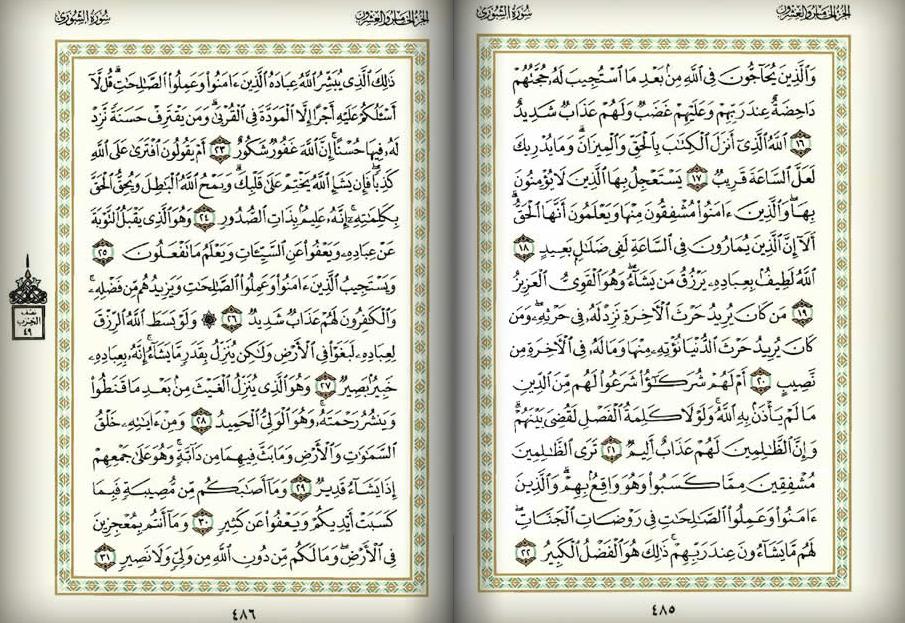 الجزء الخامس والعشرون
سورة الشورى
وَالَّذِينَ يُحَاجُّونَ فِي اللَّهِ مِنْ بَعْدِ مَا اسْتُجِيبَ لَهُ حُجَّتُهُمْ
دَاحِضَةٌ عِنْدَ رَبِّهِمْ وَعَلَيْهِمْ غَضَبٌ وَلَهُمْ عَذَابٌ شَدِيدٌ
١٦ اللَّهُ الَّذِي أَنْزَلَ الْكِتَابَ بِالْحَقِّ وَالْمِيزَانَ وَمَا يُدْرِيكَ
لَعَلَّ السَّاعَةَ قَرِيبٌ ١٧ يَسْتَعْجِلُ بِهَا الَّذِينَ لَا يُؤْمِنُونَ
بِهَا وَالَّذِينَ ءَامَنُوا مُشْفِقُونَ مِنْهَا وَيَعْلَمُونَ أَنَّهَا الْحَقُّ
أَلَا إِنَّ الَّذِينَ يُمَارُونَ فِي السَّاعَةِ لَفِي ضَلَالٍ بَعِيدٍ ١٨
اللَّهُ لَطِيفٌ بِعِبَادِهِ يَرْزُقُ مَنْ يَشَاءُ وَهُوَ الْقَوِيُّ الْعَزِيزُ
١٩ مَنْ كَانَ يُرِيدُ حَرْثَ الْآخِرَةِ نَزِدْ لَهُ فِي حَرْثِهِ وَمَنْ
كَانَ يُرِيدُ حَرْثَ الدُّنْيَا نُؤْتِهِ مِنْهَا وَمَا لَهُ فِي الْآخِرَةِ مِنْ
نَصِيبٍ ٢٠ أَمْ لَهُمْ شُرَكَٰٓؤُا شَرَعُوا لَهُمْ مِنَ الدِّينِ
مَا لَمْ يَأْذَنْ بِهِ اللَّهُ وَلَوْلَا كَلِمَةُ الْفَصْلِ لَقُضِيَ بَيْنَهُمْ
وَإِنَّ الظَّالِمِينَ لَهُمْ عَذَابٌ أَلِيمٌ ٢١ تَرَى الظَّالِمِينَ
مُشْفِقِينَ مِمَّا كَسَبُوا وَهُوَ وَاقِعٌ بِهِمْ وَالَّذِينَ
ءَامَنُوا وَعَمِلُوا الصَّالِحَاتِ فِي رَوْضَاتِ الْجَنَّاتِ
لَهُمْ مَا يَشَاءُونَ عِنْدَ رَبِّهِمْ ذَٰلِكَ هُوَ الْفَضْلُ الْكَبِيرُ ٢٢
٤٨٥
الجزء الخامس والعشرون
سورة الشورى
ذَٰلِكَ الَّذِي يُبَشِّرُ اللَّهُ عِبَادَهُ الَّذِينَ ءَامَنُوا وَعَمِلُوا الصَّالِحَاتِ قُلْ لَا
أَسْأَلُكُمْ عَلَيْهِ أَجْرًا إِلَّا الْمَوَدَّةَ فِي الْقُرْبَى وَمَنْ يَقْتَرِفْ حَسَنَةً نَزِدْ
لَهُ فِيهَا حُسْنًا إِنَّ اللَّهَ غَفُورٌ شَكُورٌ ٢٣ أَمْ يَقُولُونَ افْتَرَى عَلَى اللَّهِ
كَذِبًا فَإِنْ يَشَإِ اللَّهُ يَخْتِمْ عَلَى قَلْبِكَ وَيَمْحُ اللَّهُ الْبَاطِلَ وَيُحِقُّ الْحَقَّ
بِكَلِمَاتِهِ إِنَّهُ عَلِيمٌ بِذَاتِ الصُّدُورِ ٢٤ وَهُوَ الَّذِي يَقْبَلُ التَّوْبَةَ
عَنْ عِبَادِهِ وَيَعْفُوا عَنِ السَّيِّئَاتِ وَيَعْلَمُ مَا تَفْعَلُونَ ٢٥
وَيَسْتَجِيبُ الَّذِينَ ءَامَنُوا وَعَمِلُوا الصَّالِحَاتِ وَيَزِيدُهُمْ مِنْ فَضْلِهِ
وَالْكَافِرُونَ لَهُمْ عَذَابٌ شَدِيدٌ ٢٦ ۞ وَلَوْ بَسَطَ اللَّهُ الرِّزْقَ
لِعِبَادِهِ لَبَغَوْا فِي الْأَرْضِ وَلَٰكِنْ يُنَزِّلُ بِقَدَرٍ مَا يَشَاءُ إِنَّهُ بِعِبَادِهِ
خَبِيرٌ بَصِيرٌ ٢٧ وَهُوَ الَّذِي يُنَزِّلُ الْغَيْثَ مِنْ بَعْدِ مَا قَنَطُوا
وَيَنْشُرُ رَحْمَتَهُ وَهُوَ الْوَلِيُّ الْحَمِيدُ ٢٨ وَمِنْ ءَايَاتِهِ خَلْقُ
السَّمَاوَاتِ وَالْأَرْضِ وَمَا بَثَّ فِيهِمَا مِنْ دَابَّةٍ وَهُوَ عَلَى جَمْعِهِمْ
إِذَا يَشَاءُ قَدِيرٌ ٢٩ وَمَا أَصَابَكُمْ مِنْ مُصِيبَةٍ فَبِمَا
كَسَبَتْ أَيْدِيكُمْ وَيَعْفُوا عَنْ كَثِيرٍ ٣٠ وَمَا أَنْتُمْ بِمُعْجِزِينَ
فِي الْأَرْضِ وَمَا لَكُمْ مِنْ دُونِ اللَّهِ مِنْ وَلِيٍّ وَلَا نَصِيرٍ ٣١
نصف
الحزب
٤٩
٤٨٦